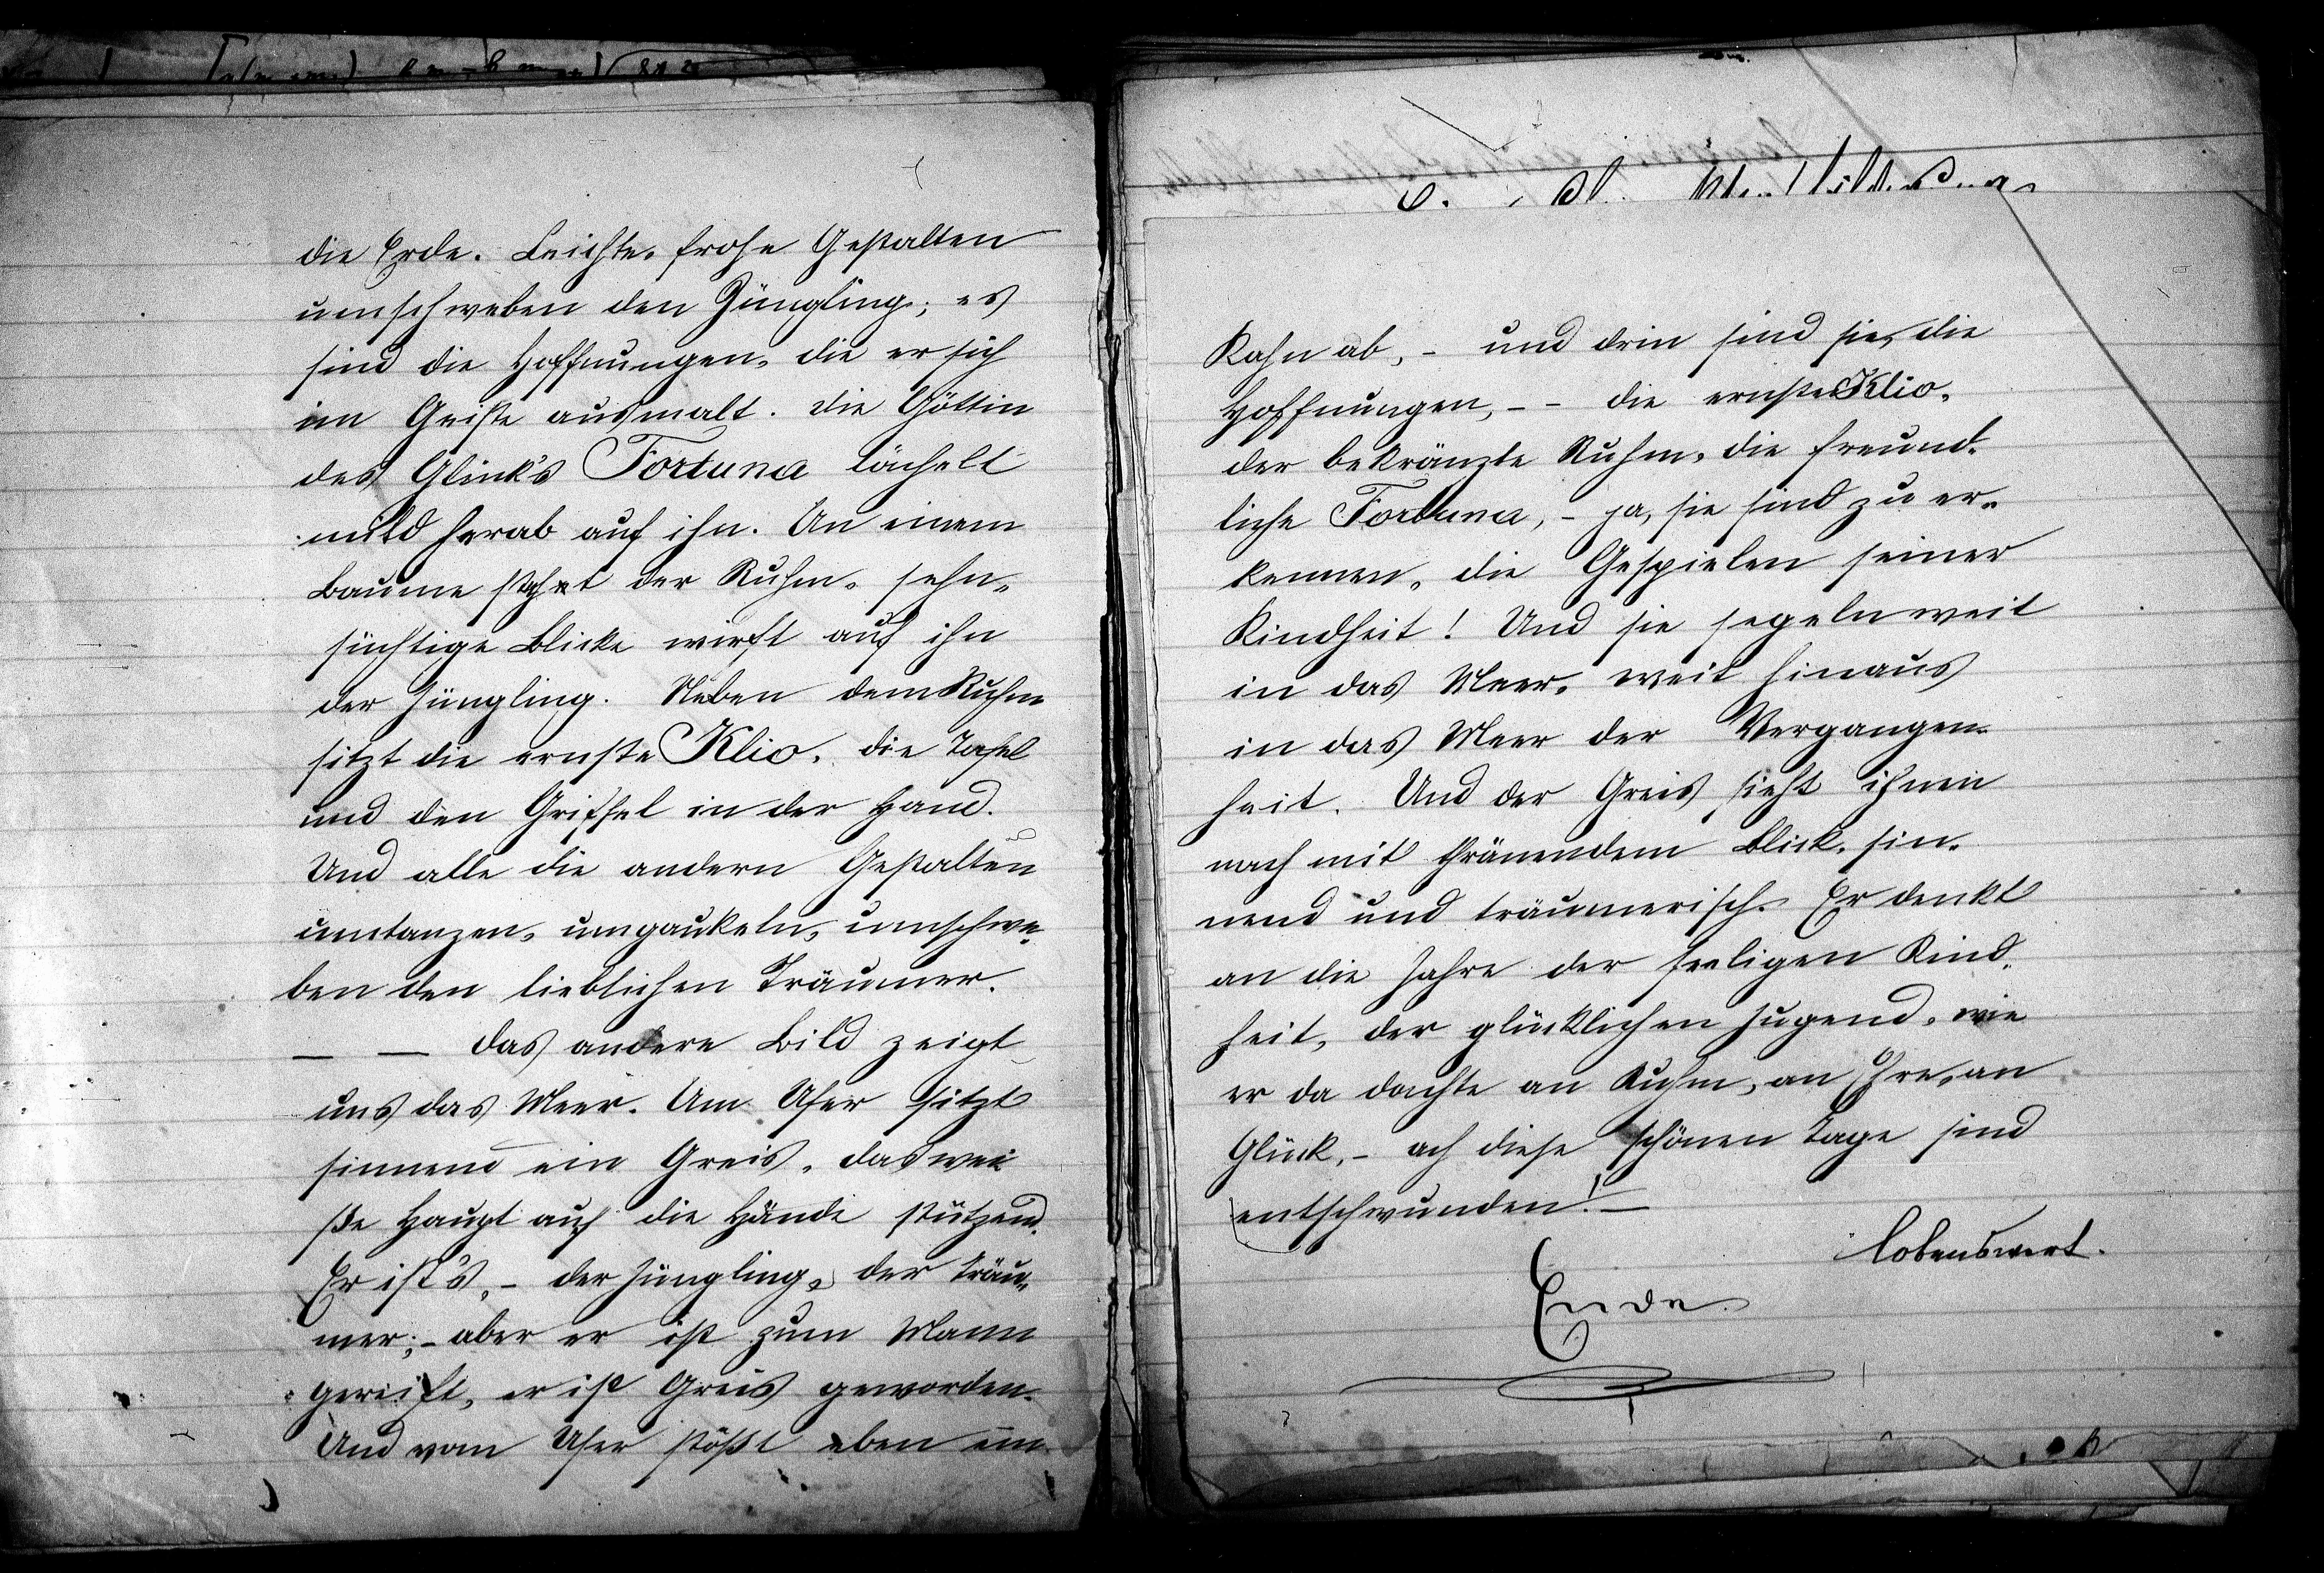 die Erde. Leichte, frohe Gestalten
umschweben den Jüngling; es
sind die Hoffnungen, die er sich
im Geiste ausmalt. Die Göttin
des Glück's Fortuna lächelt
mild herab auf ihn. An einem
Baume steht der Ruhm, sehn-
süchtige Blicke wirft auf ihn
der Jüngling. Neben dem Ruhm
sitzt die ernste Klio, die Tafel
und den Griffel in der Hand.
Und alle die andern Gestalten
umtanzen, umgaukeln, umschwe-
ben den lieblichen Träumer.
— — Das andere Bild zeigt
uns das Meer. Am Ufer sitzt
sinnend ein Greis, das wei
ße Haupt auf die Hände stützend.
Er ist's, - der Jüngling, der Träu-
mer; - aber er ist zum Mann
gereift, er ist Greis geworden.
Und vom Ufer stößt eben ein
Kahn ab, - und drin sind sie, die
Hoffnungen, - - die ernste Klio,
der bekränzte Ruhm, die freund-
liche Fortuna, - ja, sie sind zu er-
kennen, die Gespielen seiner
Kindheit! Und sie segeln weit
in das Meer, weit hinaus
in das Meer der Vergangen-
heit. Und der Greis sieht ihnen
nach mit thränendem Blick, sin-
nend und träumerisch. Er denkt
an die Jahre der seeligen Kind-
heit, der glücklichen Jugend, wie
er da dachte an Ruhm, an Ehre, an
Glück, - ach diese schönen Tage sind
entschwunden! -
lobenswert.
Ende.